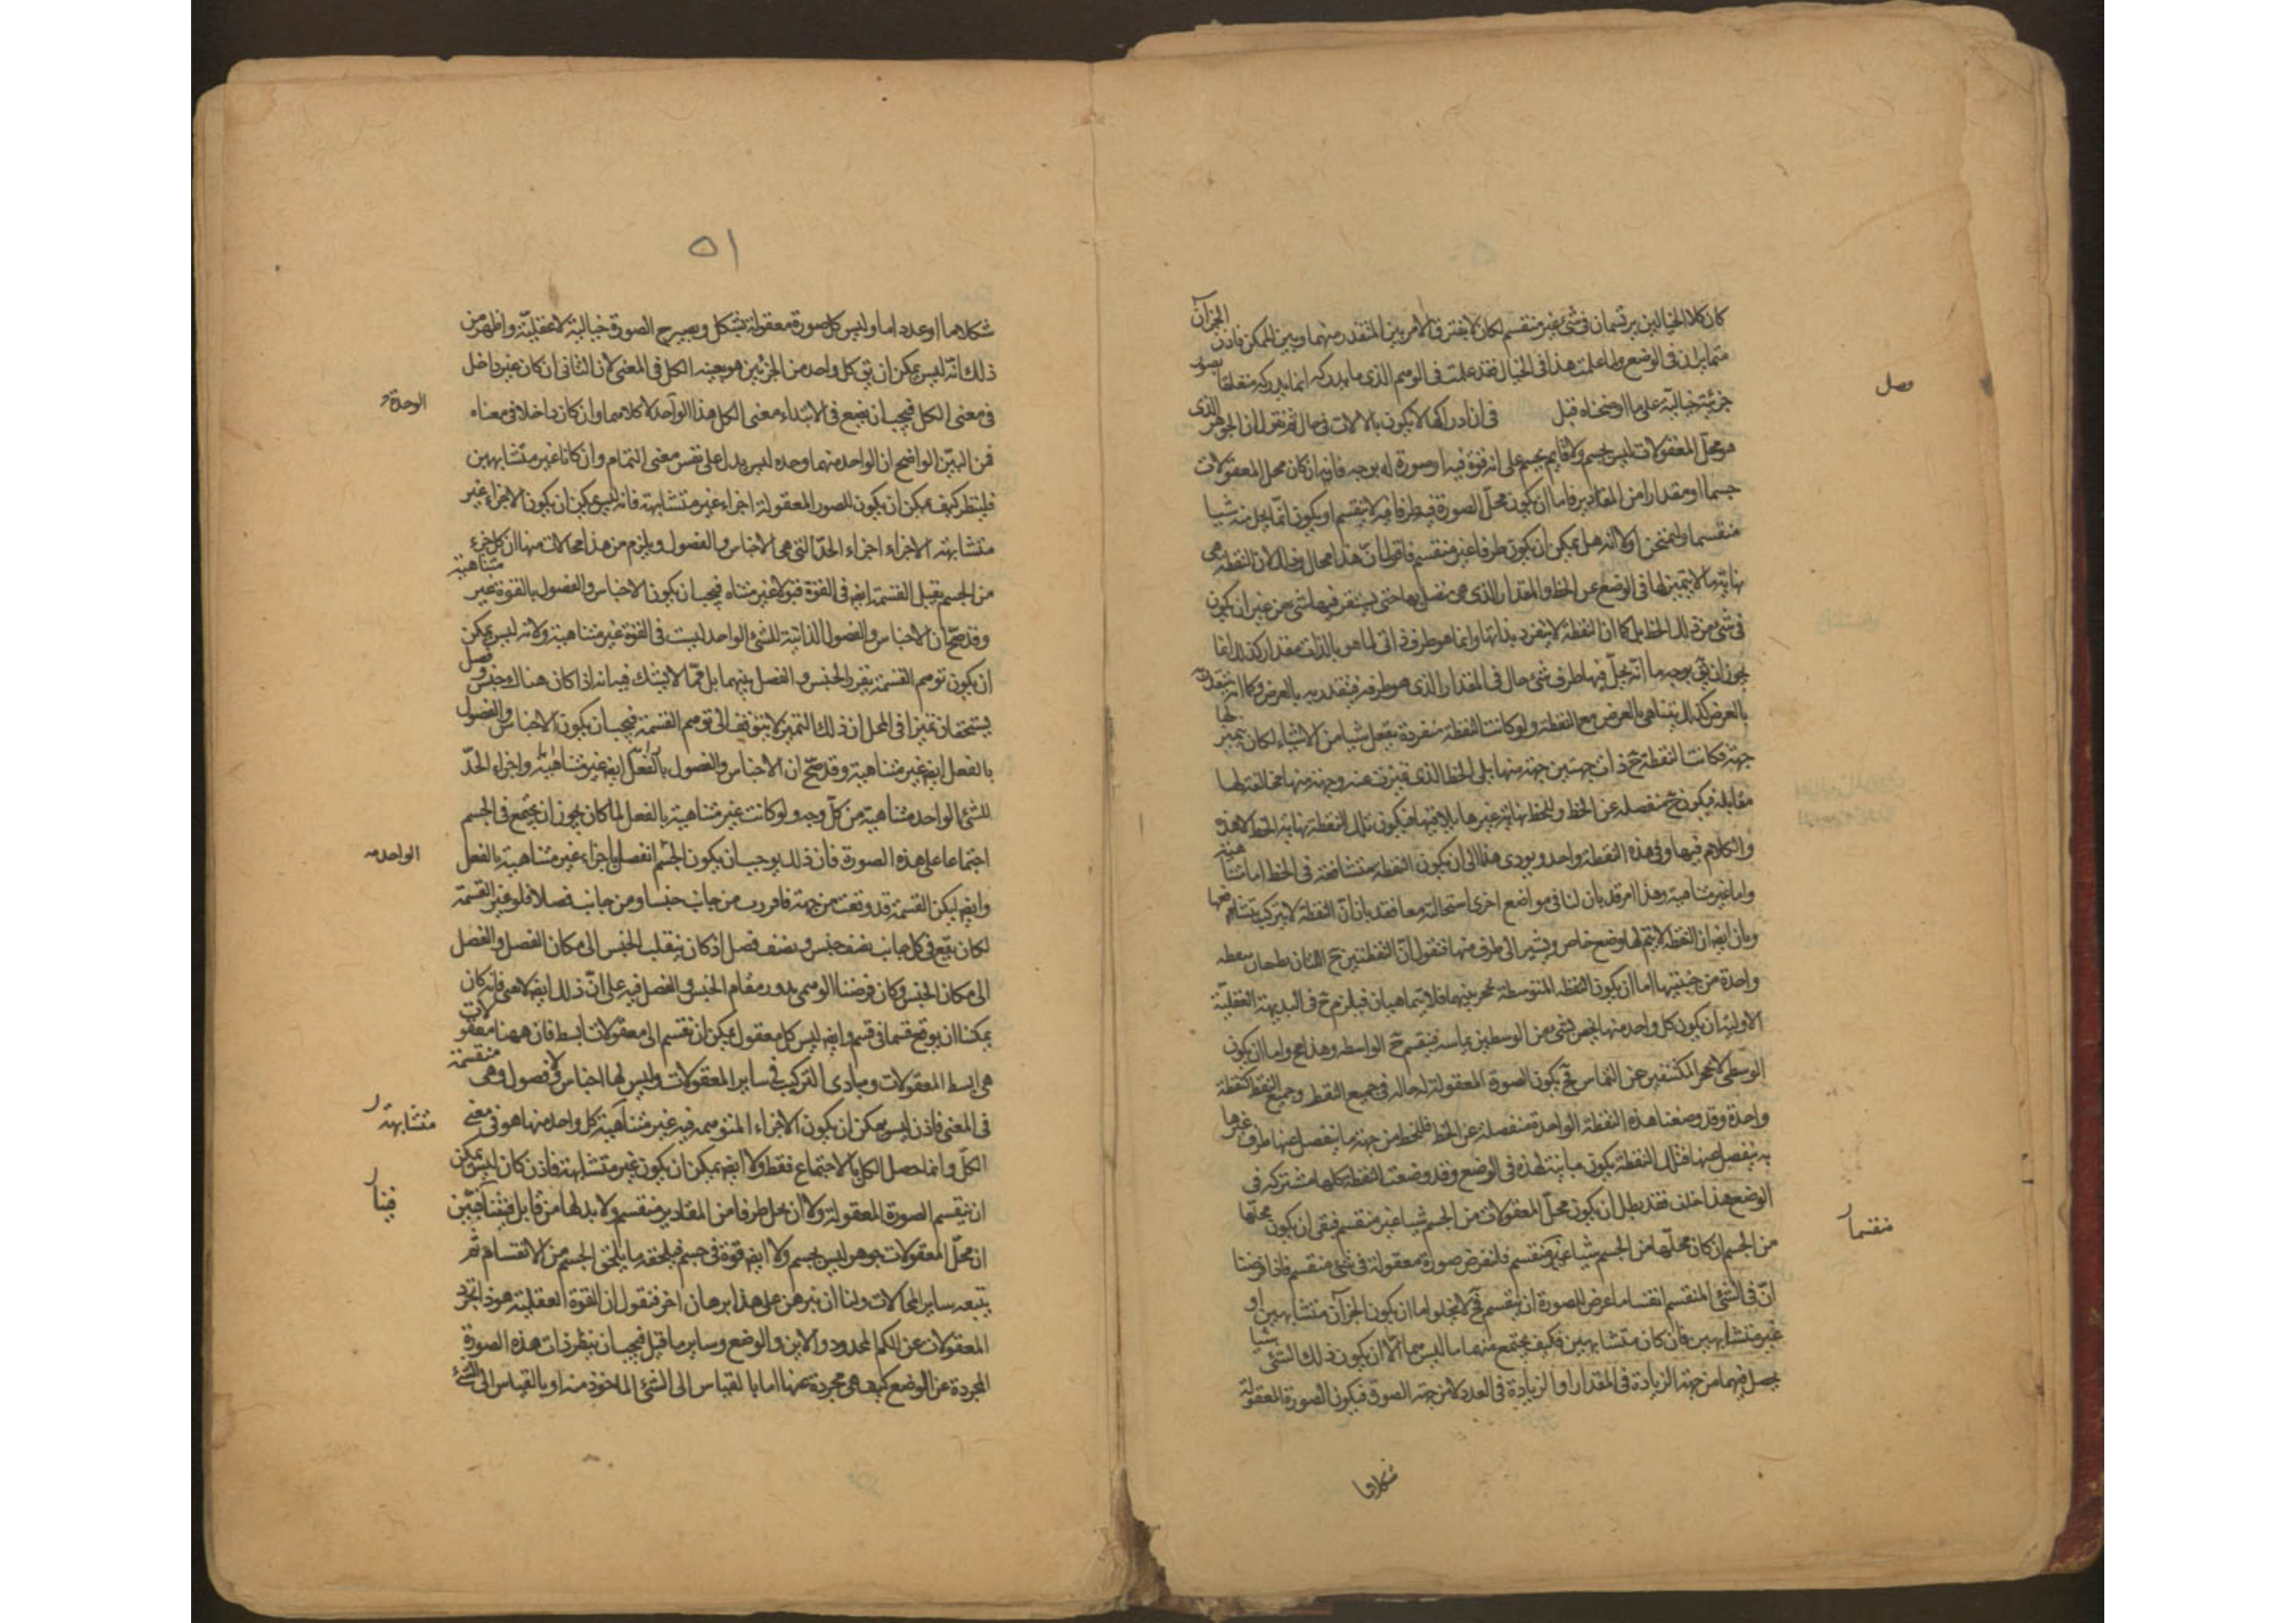 كان كلا الخيالين يرتسمان فى شئ غير منقسم لكان لا يفترق الامر بين المتعذر منهما وبين الممكن فاذن الجزآن
متمايزان فى الوضع وبما علمت هذا فى الخيال فقد علمت فى الوهم الذى ما يدركه انما يدركه متعلقا بصورة
جزئية خيالية على ما اوضحناه قبل فى ان ادراكها لا يكون بالالات فى حال ثم نقول ان الجوهر الذى
هو محل المعقولات ليس بجسم ولا قايم بجسم على انه قوة فيه او صورة له بوجه فانه ان كان محل المعقولات
جسما او مقدارا من المقادير فاما ان يكون محل الصورة فيه طرفا منه لا ينقسم او يكون انما يحل منه شيا
منقسما ولنمتحن اولا انه هل يمكن ان يكون طرفا غير منقسم فاقول ان هذا محال وذلك لان النقطة هى
نهاية ما لا يتميز لها فى الوضع عن الخط والمقدار الذى هى متصل بها حتى يستقر فيها شئ من غير ان يكون
فى شئ من ذلك الخط بل كما ان النقطة لا ينفرد بذاتها وانما هو طرف ذاتى لما هو بالذات مقدار كذلك انما
يجوز ان يق بوجه ما انه يحل فيها طرف شئ حال فى المقدار الذى هو طرفه فيتقدر به بالعرض وكما انه يتقدر به
بالعرض كذلك يتناهى بالعرض مع النقطة ولو كانت النقطة منفردة تقبل شيا من الاشياء لكان يتميز لها
جهة فكانت النقطة ح ذات جهتين جهة منها يلى الخط الذى تميزت عنه وجهة منها مخالفة لها
مقابلة فيكون ح منفصلة عن الخط وللخط نهاية غيرها يلاقيها فيكون تلك النقطة نهاية الخط لا هذه
والكلام فيها وفى هذه النقطة واحد ويودى هذا الى ان يكون النقطة متشافعة فى الخط اما متناهية
واما غير متناهية وهذا امر قد بان لنا فى مواضع اخرى استحالته معا فقد بان ان النقطة لا يتركب بتشافعها
وبان ايضا ان النقطة لا يتم لها وضع خاص ويشير الى طرف منها فنقول ان النقطتين ح اللتان نقطة
واحدة من جنبتيها اما ان يكون النقطة المتوسطة تحجز بينهما فلا يتماسان فيلزم ح فى البديهة العقلية
الاولية ان يكون كل واحد منها يختص بشئ من الوسطى يماسه فينقسم ح الواسطة وهذا مح واما ان يكون
الوسطى لا تحجز المكتنفين عن التماس فح يكون الصورة المعقولة حالة فى جميع النقط وجميع النقط كنقطة
واحدة وقد وضعنا هذه النقطة الواحدة منفصلة عن الخط فللخط من جهة ما ينفصل عنها طرف غيرها
به ينفصل عنها فتلك النقطة يكون مباينة لهذه فى الوضع وقد وضعت النقطة كلها مشتركة فى
الوضع هذا خلف فقد بطل ان يكون محل المعقولات من الجسم شيا غير منقسم فبقى ان يكون محلها
من الجسم ان كان محلها من الجسم شيا غير منقسم فلنفرض صورة معقولة فى شئ منقسم فاذا فرضنا
ان فى الشئ المنقسم انقساما عرض للصورة ان ينقسم فح لا يخلو اما ان يكون الجزآن متشابهين او
غير متشابهين فان كان متشابهين فكيف يجتمع منهما ما ليس هما الا ان يكون ذلك الشئ شيا
يحصل فيهما من جهة الزيادة فى المقدار او الزيادة فى العدد لا من جهة الصورة فيكون الصورة المعقولة
شكلاما
وصل
منقسما
٥١
شكلا ما او عددا ما وليس كل صورة معقولة بشكل ويصير ح الصورة خيالية لا عقلية واظهر من
ذلك انه ليس يمكن ان يق كل واحد من الجزئين هو بعينه الكل فى المعنى لان الثانى ان كان غير داخل
فى معنى الكل فيجب ان نضع فى الابتداء معنى الكل هذا الواحد لا كلاهما وان كان داخلا فى معناه
فمن البين الواضح ان الواحد منهما وحده ليس يدل على نفس معنى التمام وان كانا غير متشابهين
فلينظر كيف يمكن ان يكون للصور المعقولة اجزاء غير متشابهة فانه ليس يمكن ان يكون الاجزاء غير
متشابهة الاجزاء اجزاء الحد التى هى الاجناس والفصول ويلزم من هذا محالات منها ان كل جزء
من الجسم يقبل القسمة ايض فى القوة قبولا غير متناه فيجب ان يكون الاجناس والفصول بالقوة غير متناهية
وقد صح ان الاجناس والفصول الذاتية للشئ الواحد ليست فى القوة غير متناهية ولانه ليس يمكن
ان يكون توهم القسمة يفرز الجنس والفصل بينهما بل مما لا يشك فيه انه اذا كان هناك جنس وفصل
يستحقان تميزا فى المحل ان ذلك التميز لا يتوقف الى توهم القسمة فيجب ان يكون الاجناس والفصول
بالفعل ايض غير متناهية وقد صح ان الاجناس والفصول بالفعل ايض غير متناهية واجزاء الحد
للشئ الواحد متناهية من كل وجه ولو كانت غير متناهية بالفعل لما كان يجوز ان يجتمع فى الجسم
اجتماعا على هذه الصورة فان ذلك يوجب ان يكون الجسم انفصل باجزاء غير متناهية بالفعل
وايض ليكن القسمة قد وقعت من جهة فافرزت من جانب جنسا ومن جانب فصلا فلو غير القسمة
لكان يقع فى كل جانب نصف جنس ونصف فصل اذ كان ينقلب الجنس الى مكان الفصل والفصل
الى مكان الجنس وكان فرضنا الوهمى يدور مقام الجنس والفصل فيه على ان ذلك ايض لا يغنى فانه كان
يمكننا ان يوقع قسما فى قسم وايض ليس كل معقول يمكن ان يقسم الى معقولات ابسط فان ههنا معقولات
هى ابسط المعقولات ومبادى التركيب فى ساير المعقولات وليس لها اجناس ولا فصول وهى لا منقسمة
فى المعنى فاذن ليس يمكن ان يكون الاجزاء المتوهمة فيه غير متناهية كل واحد منها هو فى معنى
الكل وانما حصل الكل بالاجتماع فقط ولا ايض يمكن ان يكون غير متشابهة فاذن كان ليس يمكن
ان ينقسم الصورة المعقولة ولا ان يحل طرفا من المقادير منقسم ولا بد لها من قابل فينا فبين
ان محل المعقولات جوهر ليس بجسم ولا ايض قوة فى جسم فيلحقه ما يلحق الجسم من الانقسام ثم
يتبعه ساير المحالات ولنا ان نبرهن على هذا ببرهان اخر فنقول ان القوة العقلية هو ذا تجرد
المعقولات عن الكم المحدود والاين والوضع وساير ما قيل فيجب ان ينظر ذات هذه الصورة
المجردة عن الوضع كيف هى مجردة عنها اما بالقياس الى الشئ الماخوذ منه او بالقياس الى الشئ
الوحدة
الواحد
متشابهة
فينا